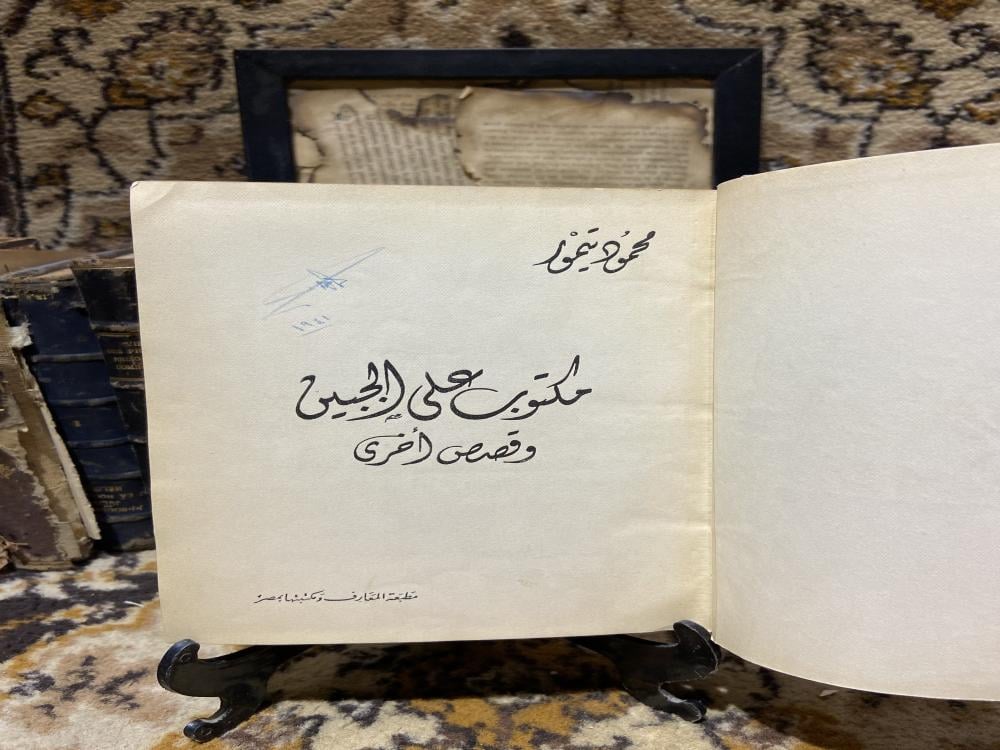 محمود تيمور
١٩٤١
مكتوب على الجبين
وقصص أخرى
مطبعة المعارف ومكتبتها بمصر